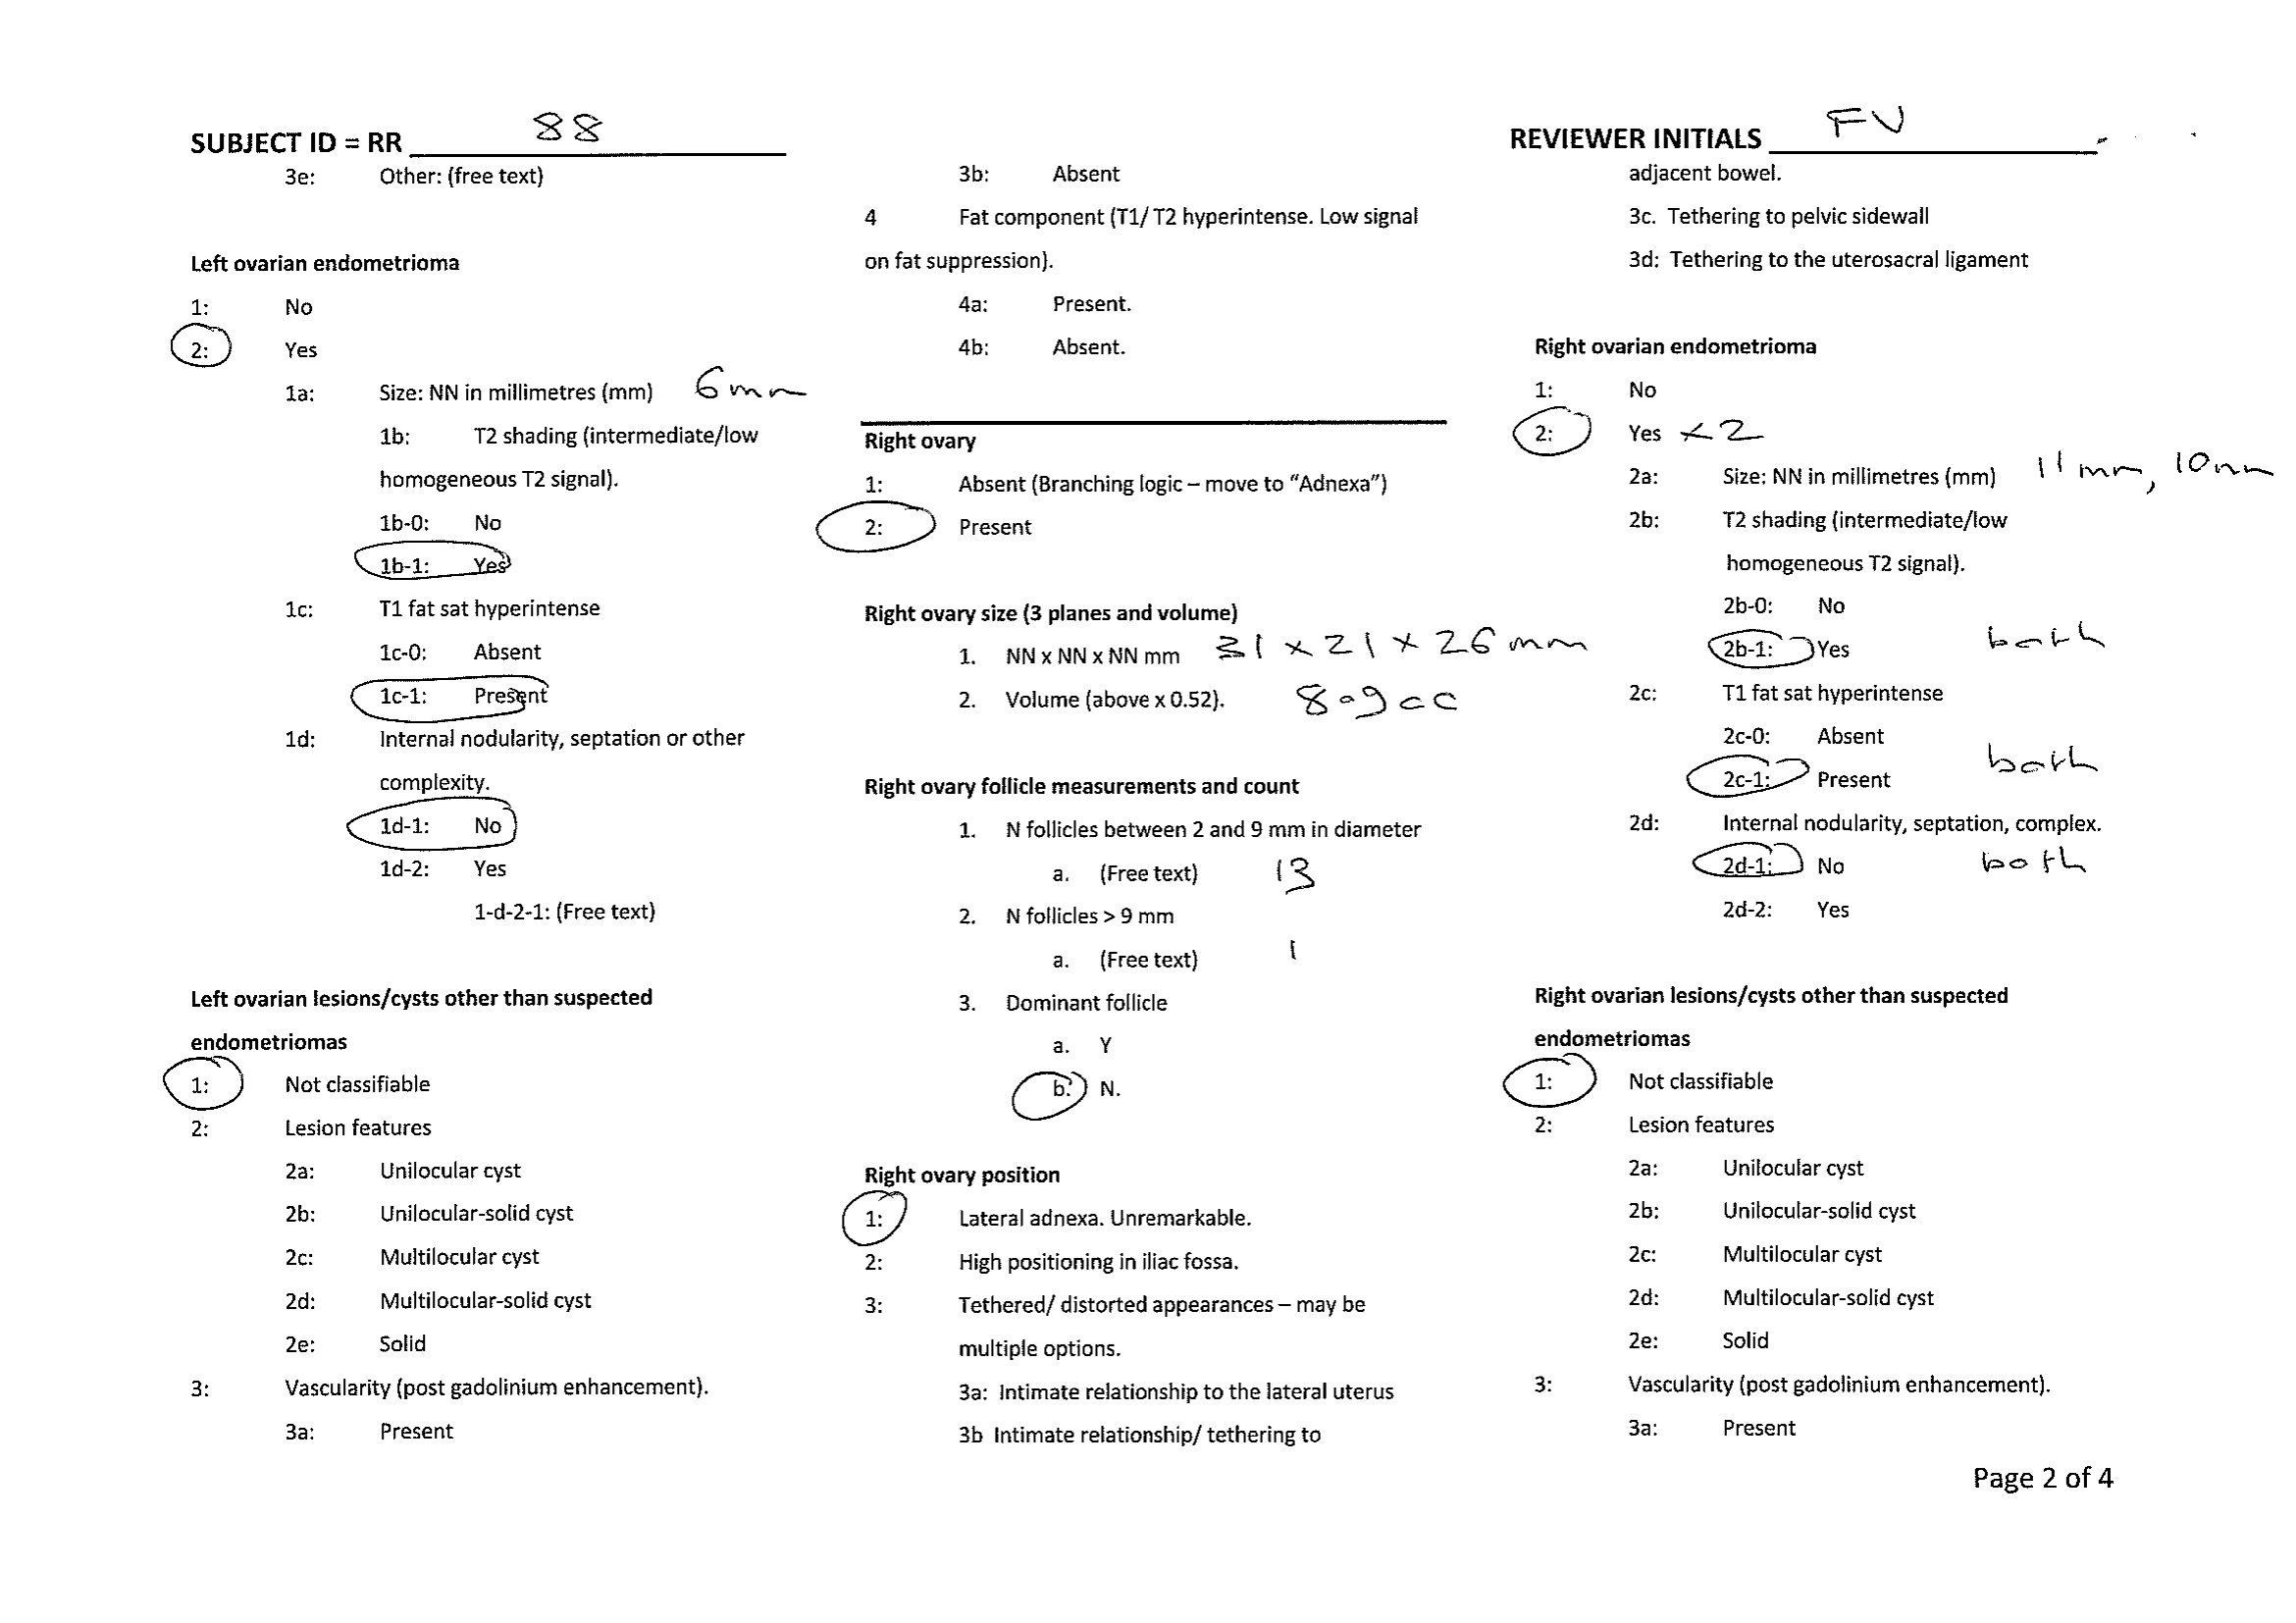 SUBJECT ID = RR 88
3e: Other: (free text)
Left ovarian endometrioma
1: No
2: Yes
1a: Size: NN in millimetres (mm) 6mm
1b: T2 shading (intermediate/low
homogeneous T2 signal).
1b-0: No
1b-1: Yes
1c: T1 fat sat hyperintense
1c-0: Absent
1c-1: Present
1d: Internal nodularity, septation or other
complexity.
1d-1: No
1d-2: Yes
1-d-2-1: (Free text)
Left ovarian lesions/cysts other than suspected
endometriomas
1: Not classifiable
2: Lesion features
2a: Unilocular cyst
2b: Unilocular-solid cyst
2c: Multilocular cyst
2d: Multilocular-solid cyst
2e: Solid
3: Vascularity (post gadolinium enhancement).
3a: Present
3b: Absent
4 Fat component (T1/ T2 hyperintense. Low signal
on fat suppression).
4a: Present.
4b: Absent.
Right ovary
1: Absent (Branching logic – move to “Adnexa”)
2: Present
Right ovary size (3 planes and volume)
1. NN x NN x NN mm 31 x 21 x 26 mm
2. Volume (above x 0.52). 8.9cc
Right ovary follicle measurements and count
1. N follicles between 2 and 9 mm in diameter
a. (Free text) 13
2. N follicles > 9 mm
a. (Free text) 1
3. Dominant follicle
a. Y
b. N.
Right ovary position
1: Lateral adnexa. Unremarkable.
2: High positioning in iliac fossa.
3: Tethered/ distorted appearances – may be
multiple options.
3a: Intimate relationship to the lateral uterus
3b Intimate relationship/ tethering to
REVIEWER INITIALS FV
adjacent bowel.
3c. Tethering to pelvic sidewall
3d: Tethering to the uterosacral ligament
Right ovarian endometrioma
1: No
2: Yes x2
2a: Size: NN in millimetres (mm) 11mm, 10mm
2b: T2 shading (intermediate/low
homogeneous T2 signal).
2b-0: No
2b-1: Yes both
2c: T1 fat sat hyperintense
2c-0: Absent
2c-1: Present both
2d: Internal nodularity, septation, complex.
2d-1: No both
2d-2: Yes
Right ovarian lesions/cysts other than suspected
endometriomas
1: Not classifiable
2: Lesion features
2a: Unilocular cyst
2b: Unilocular-solid cyst
2c: Multilocular cyst
2d: Multilocular-solid cyst
2e: Solid
3: Vascularity (post gadolinium enhancement).
3a: Present
Page 2 of 4